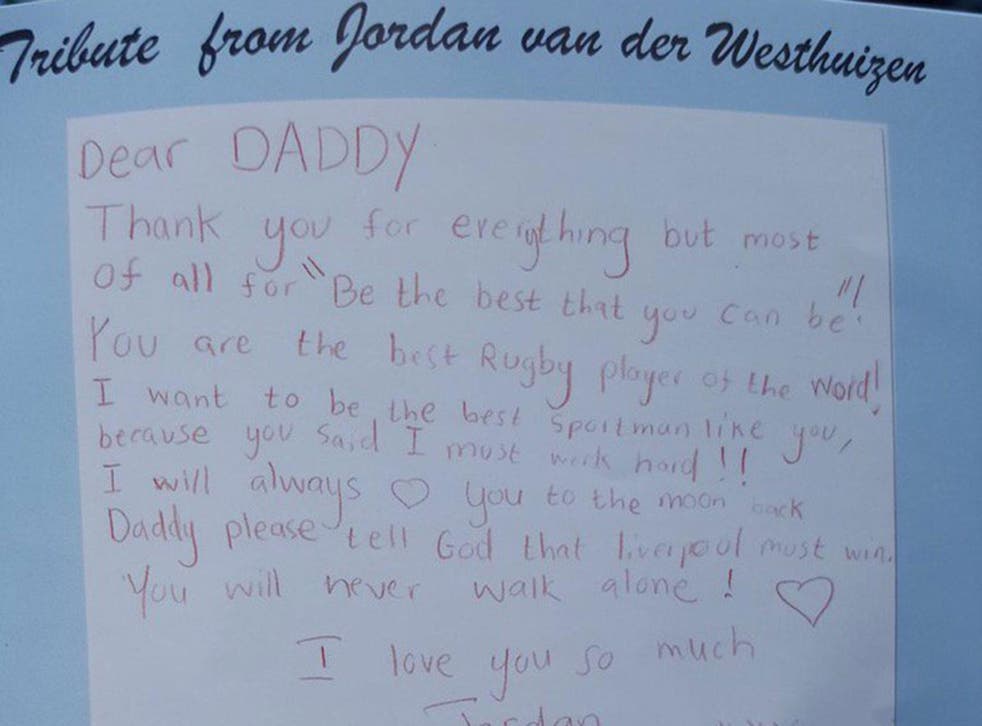 Tribute from Jordan van der Westhuizen
Dear DADDY
Thank you for everything but most
of all for "Be the best that you can be!"
You are the best Rugby player of the word!
I want to be the best Sportman like you,
because you said I must work hard!!
I will always ♡ you to the moon back
Daddy please tell God that liverpool most win.
You will never walk alone! ♡
I love you so much
Jordan